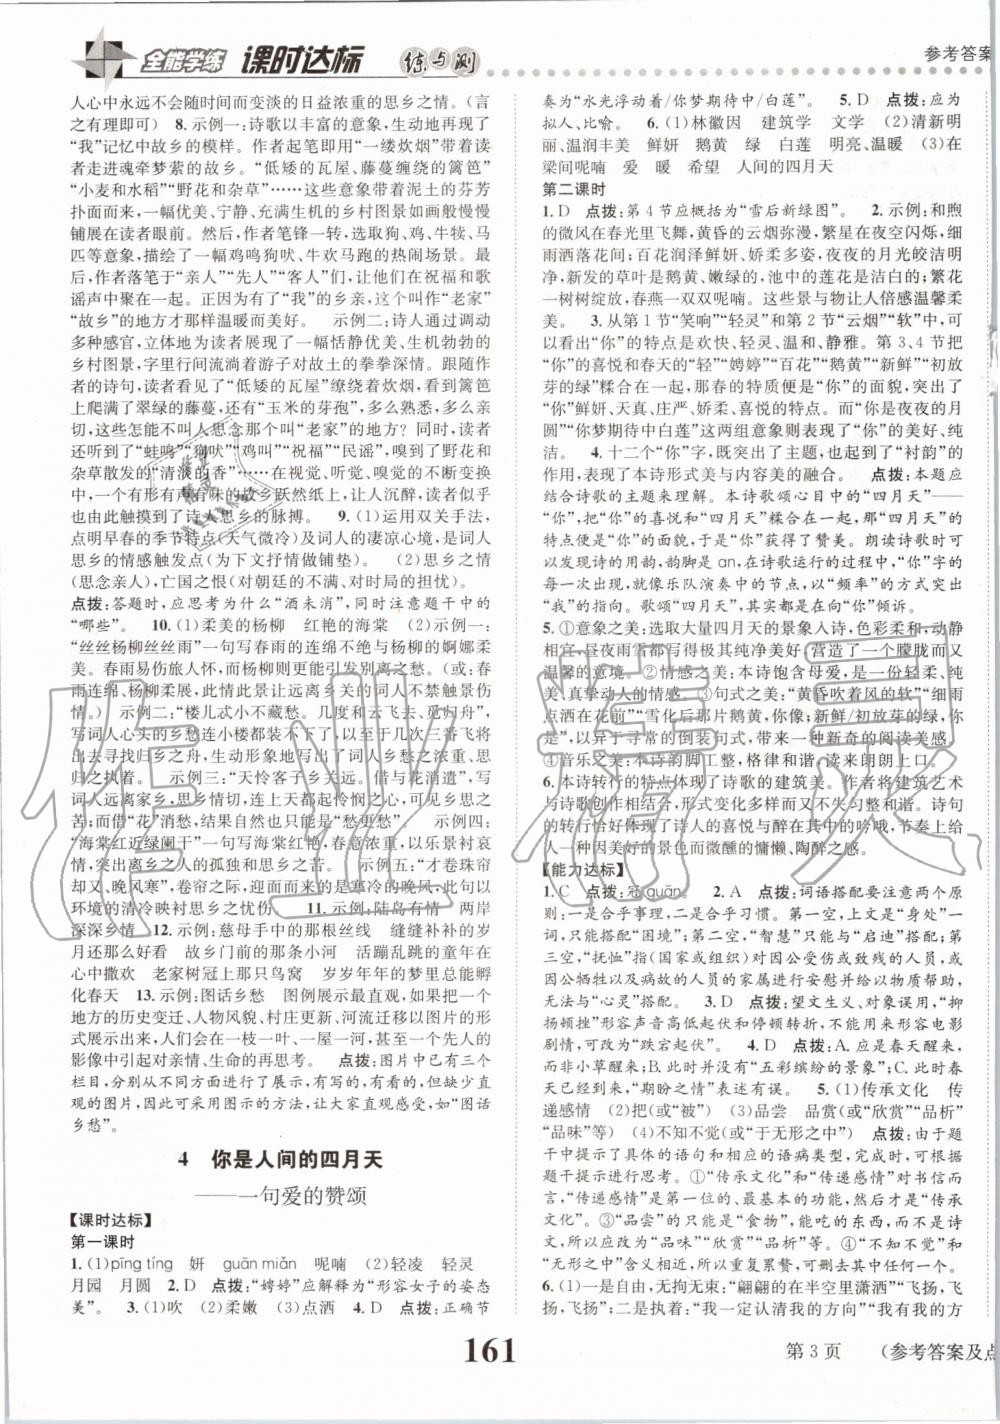 全能学练 课时达标 练与测
参考答案
人心中永远不会随时间而变淡的日益浓重的思乡之情。(言
之有理即可) 8. 示例一:诗歌以丰富的意象,生动地再现了
“我”记忆中故乡的模样。作者起笔即以“一缕炊烟”带领读
者走进魂牵梦萦的故乡。“低矮的瓦屋、藤蔓缠绕的篱笆”
“小麦和水稻”“野花和杂草”……这些意象带着泥土的芬芳
扑面而来,一幅优美、宁静、充满生机的乡村图景如画般慢慢
铺展在读者眼前。然后,作者笔锋一转,选取狗、公鸡、牛、马
匹等意象,描绘了一幅鸡鸣狗吠、牛欢马跑的热闹场景。最
后,作者落笔于“亲人”“先人”“客人”们,让他们在祝福和歌
谣声中聚在一起。正因为有了“我”的乡亲,这个叫作“老家”
“故乡”的地方才那样温暖而美好。 示例二:诗人通过调动
多种感官,立体地为读者展现了一幅恬静优美、生机勃勃的
乡村图景,字里行间流淌着游子对故土的拳拳深情。跟随作
者的诗句,读者看到“低矮的瓦屋”缭绕着炊烟,看到篱笆
上爬满了翠绿的藤蔓,还有“玉米的芽孢”,多么多姿,多么亲
切,怎么能不叫人思念这个叫“老家”的地方?同时,读者
还听到了“蛙鸣”“狗吠”“鸡叫”“祝福”“民谣”,嗅到了野花和
杂草散发的“清淡的香”……在视觉、听觉、嗅觉的不断变换
中,一个有形有声有味的故乡跃然纸上,让人沉醉,读者似乎
也由此触摸到了诗人思乡的脉搏。 9. (1)运用双关手法,
点明早春的季节特点(天气微冷)及词人的凄凉心境,是词人
思乡的情感触发点(为下文抒情做铺垫) (2)思乡之情
(思念亲人),亡国之恨(对朝廷的不满、对时局的担忧)。
点拨:答题时,应思考为什么“酒未消”,同时注意题干中的
“哪些”。 10. (1)柔美的杨柳 红艳的海棠 (2)示例一:
“丝丝杨柳丝丝雨”一句写春雨的连绵不绝与杨柳的婀娜多
姿。春雨易伤旅人怀,而杨柳则同离别相关。(或:春
雨连绵、杨柳柔弱,此情此景让远离乡关的词人不禁触景伤
情) 示例二:“楼儿忒小不藏愁。几度和云飞去、觅归舟”,
写词人心头的乡愁连小楼都装不下了,以至于多次三番飞出
去寻找归乡之舟,生动形象地写出了词人乡愁之浓重、思归
之执着。 示例三:“天怜客子乡关远。借与花消遣”,写
词人远离家乡,思乡情切,连上天都起怜悯之心,可见乡思之
苦;而借“花”消愁,只会让愁更愁。 示例四:
“海棠红近绿阑干”一句写海棠红艳,春意浓重,以乐景衬哀
情,突出离乡之人的孤独和思乡之苦。 示例五:“才卷珠帘
却又、晚风寒”,卷帘春色,却感受到了寒冷的晚风,此句以
环境的清冷映衬思乡之忧伤。 11. 示例:陆岛有情 两岸
深深乡情 12. 示例:慈母手中的那根丝线 缝缝补补的岁
月还那么好看 故乡门前的那条小河 活蹦乱跳的童年在
心中撒欢 老家树冠上那只鸟窝 岁岁年年的梦里总能孵
化春天 13. 示例:图话乡愁 图例展示最直观,如将一个
地方的历史变迁、人物风貌、村庄更新、河流迁移以图片的形
式展示出来,人们会在一枝一叶、一屋一河,甚至一个先人的
影像中引起对亲情、生命的再思考。 点拨:图片中已有三个
栏目,分别从对联、童谣、诗歌等方面进行了展示,但缺少直
观的图片,因此可采用图示的方法,让大家直观感受,如“图话
乡愁”。
4 你是人间的四月天
——一句爱的赞颂
【课时达标】
第一课时
1. (1)pīng tíng 妍 guān miǎn 呢喃 (2)轻凌 轻灵
月园 月圆 2. D 点拨:“娉婷”应解释为“形容女子的姿态
美”。 3. (1)吹 (2)柔嫩 (3)点洒 4. D 点拨:正确节
奏为“水光浮动着/你梦期待中/白莲”。 5. D 点拨:应为
拟人、比喻。 6. (1)林徽因 建筑学 文学 (2)清新明
丽、温润丰美 鲜妍 鹅黄 绿 白莲 明亮、温暖 (3)在
梁间呢喃 爱 暖 希望 人间的四月天
第二课时
1. D 点拨:第4节应概括为“雪后新绿图”。 2. 示例:和煦
的微风在春光里飞舞,黄昏的云烟氤氲,星星在夜空闪烁,细
雨洒落在花前;百花润泽鲜妍、婀娜多姿,夜夜的月光皎洁明
亮,新发的草叶是鹅黄、嫩绿的,池中的莲花是洁白的;繁花
一树树绽放,春燕一双双呢喃;这些景与物让人倍感温馨柔
美。 3. 从第1节“笑响”“轻灵”和第2节“云烟”“软”中,可
以看出“你”的特点是欢快、轻灵、温和、静雅。第3、4节把
“你”的喜悦和春天的“轻”“娉婷”“百花”“鹅黄”“新鲜”“初放
芽的绿”糅合在一起,那春的特质便是“你”的面貌,突出了
“你”鲜妍、天真、庄严、娇柔、喜悦的特点。而“你是夜夜的月
圆”“你梦期待中白莲”这两组意象则表现了“你”的美好、纯
洁。 4. 十二个“你”,既突出了主题,也起到了“衬韵”的
作用,表现了本诗形式美与内容美的融合。 点拨:本题应
结合诗歌的主题来理解。本诗歌颂心目中的“四月天”——
“你”,把“你”的喜悦和“四月天”糅合在一起,那“四月天”的
特点便是“你”的面貌,于是“你”获得了赞美。朗读诗时可
以发现诗的用韵,在诗歌运行的过程中是 an,在诗中“你”字的
每一次出现,就像乐队演奏中的节点,以“频率”的方式突出
“我”的指向。歌颂“四月天”,是要在情感上向“你”倾诉。
5. ①意象之美:选取大量四月天的景象入诗,色彩柔和,动静
相宜,昼夜雨雪都写得极其纯净美好,营造了一个朦胧而又
温馨的意境。 ②情感之美:本诗饱含母爱,是一份轻柔、纯
美、真挚动人的情感。 ③句式之美:“黄昏吹着风的软”“细雨
点洒在花前”“雪化后那片鹅黄,你像;新鲜/初放芽的绿,你
是”,以异于寻常的倒装句式,带来一种新奇的阅读美感。
④音乐之美:本诗韵脚工整,格律和谐,读来朗朗上口。
6. 本诗转行的特点体现了诗歌的建筑美。作者将建筑艺术
与诗歌创作相结合,形式变化多样而又不失引整和谐。诗句
的转行恰好体现了诗人的喜悦与醉在其中的吟哦,节奏上给
人一种因美好的景色而微醺的慵懒、陶醉之感。
【能力达标】
1. C 点拨:冠 guān。 2. A 点拨:词语搭配要注意两个原
则:一是合乎事理,一是合乎习惯。第一空,上文是“身处”一
词,只能搭配“困境”;第二空,“智慧”只能与“启迪”搭配;第
三空,“抚恤”指(国家或组织)对因公受伤或致残的人员,
包括因公牺牲以及病故的人员的家属进行安慰并给以帮助,
无法与“心灵”搭配。 3. D 点拨:望文生义、对象误用,“抑
扬顿挫”形容声音高低起伏和停顿转折,不能用来形容电影
剧情,可改为“跌宕起伏”。 4. D 点拨:A. 应是春天醒来,
而非诗人醒来;B. 此时并没有“五彩缤纷的景象”;C. 此时春
天已经到来,“期盼之情”表述有误。 5. (1)传承文化 传
递感情 (2)把(或“被”) (3)品尝 品赏(或“欣赏”“品析”
“品味”等) (4)不知不觉(或“于无形之中”) 点拨:由于题
干中提示了具体的语句和相应的语病类型,完成时,可根据
题干提示进行思考。①“传承文化”和“传递感情”两者相
比,“传递感情”是第一位的、最基本的功能,然后才是“传承
文化”。③“品尝”的只能是“食物”,能吃的东西,而不是诗
歌,所以应改为“品味”“欣赏”“品析”。④“不知不觉”和“于
无形之中”含义相同,所以重复累赘,只需要其中任何一个。
6. (1)一是自由,无拘无束:“翩翩的在半空里潇洒”“飞扬,飞
扬,飞扬”;二是执着:“我一定认清我的方向”“我有我的方
161
第3页
(参考答案及点